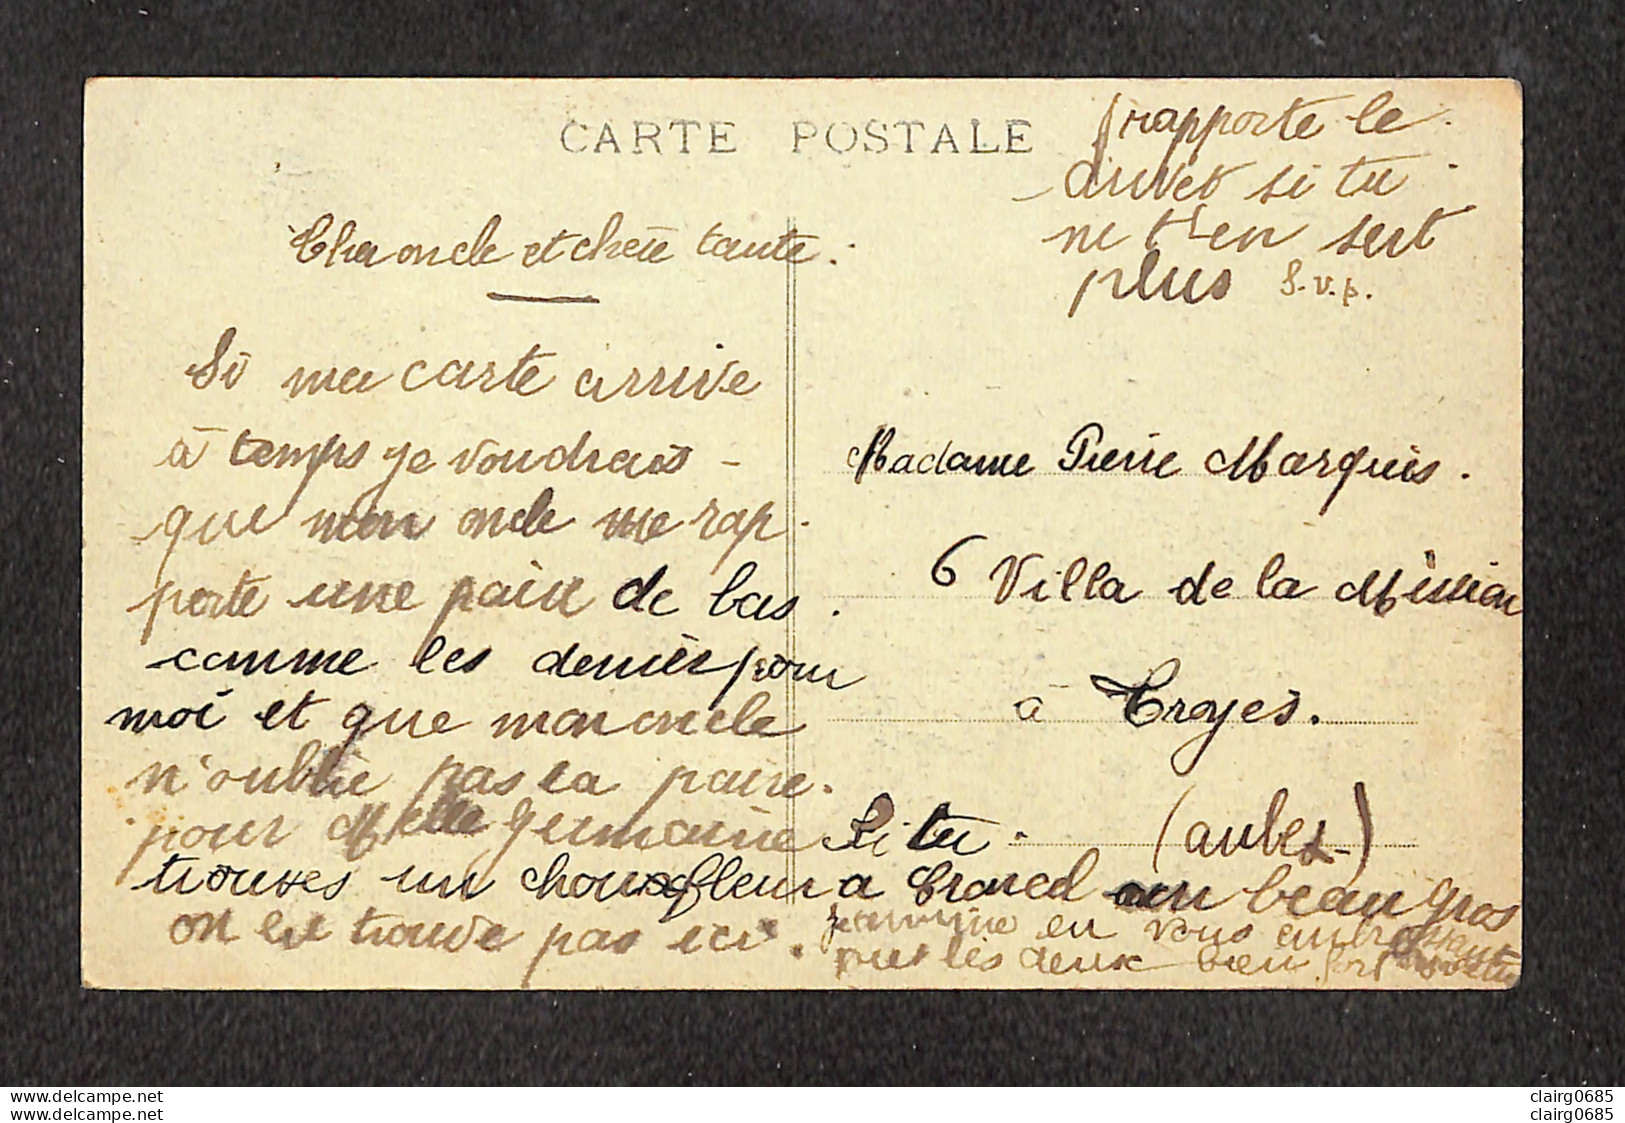 CARTE POSTALE
rapporte le
duvet si tu
ne t'en sert
plus S.v.p.
Cher oncle et chère tante.
Si ma carte arrive
à temps je voudrais
que mon oncle me rap
porte une paire de bas.
comme les dernier pour
moi et que mon oncle
n'oublie pas la paire.
pour Melle Germaine Si tu
trouves un chouxfleur a Croncel un beau gros
on en trouve pas ici.
Je termine en vous embrassant
tout les deux bien fort
Madame Pierre Marquis.
6 Villa de la Mission
à Troyes.
(aube)
www.delcampe.net
www.delcampe.net
clairg0685
clairg0685